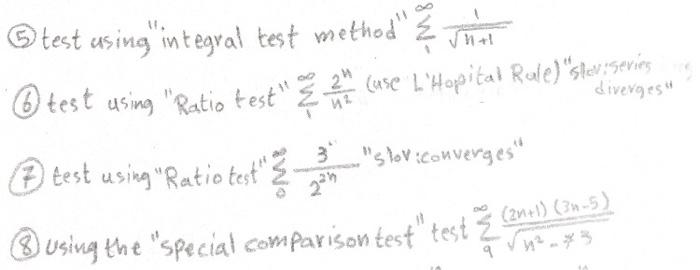 ⑤ test using "integral test method" ∞ Σ 1 1/√n+1
⑥ test using "Ratio test" ∞ Σ 1 2ⁿ/n² (use L'Hopital Rule) "slov:series
diverges"
⑦ test using "Ratio test" ∞ Σ 0 3/2²ⁿ "slov:converges"
⑧ using the "special comparison test" test ∞ Σ 9 (2n+1)(3n-5)/√n²-73